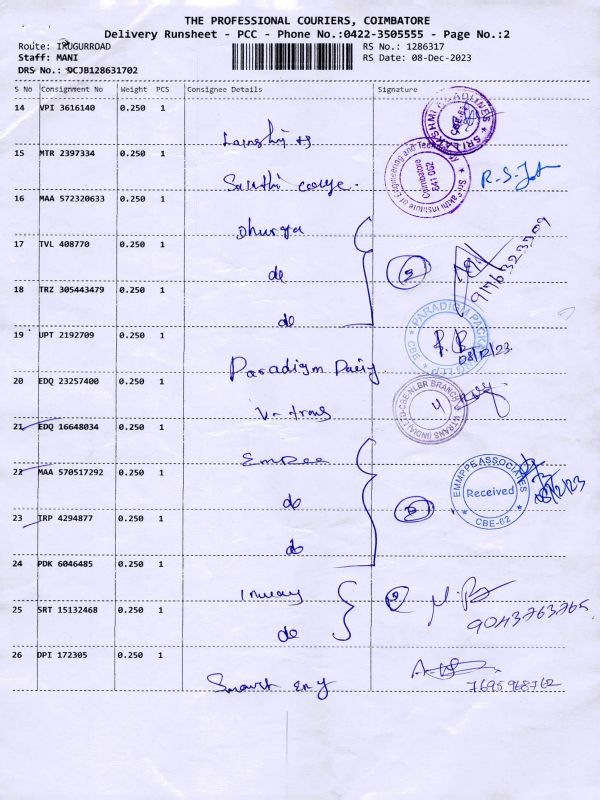 THE PROFESSIONAL COURIERS, COIMBATORE
Delivery Runsheet - PCC - Phone No.:0422-3505555 - Page No.:2
Route: IRUGURROAD
RS No.: 1286317
Staff: MANI
RS Date: 08-Dec-2023
DRS No.: DCJB128631702
S No Consignment No Weight PCS Consignee Details Signature
14 VPI 3616140 0.250 1
SRI LAKSHMI
CBE-62
15 MTR 2397334 0.250 1
Sri Sakthi Institute of Engineering and Technology
Coimbatore
641 062
16 MAA 572320633 0.250 1
Dhurga
17 TVL 408770 0.250 1
do
9176323909
18 TRZ 305443479 0.250 1
do
19 UPT 2192709 0.250 1
Paradigm
PARADIGM PACKAGING LLP
CBE
08/12/23.
20 EDQ 23257400 0.250 1
V-trans
V-TRANS (INDIA) LTD CBE-NLBR BRANCH
21 EDQ 16648034 0.250 1
Empee
22 MAA 570517292 0.250 1
do
EMMPPE ASSOCIATES
Received
CBE-62
08/12/23
23 TRP 4294877 0.250 1
do
24 PDK 6046485 0.250 1
25 SRT 15132468 0.250 1
do
9043763765
26 DPI 172305 0.250 1
Smart eng
7695968762